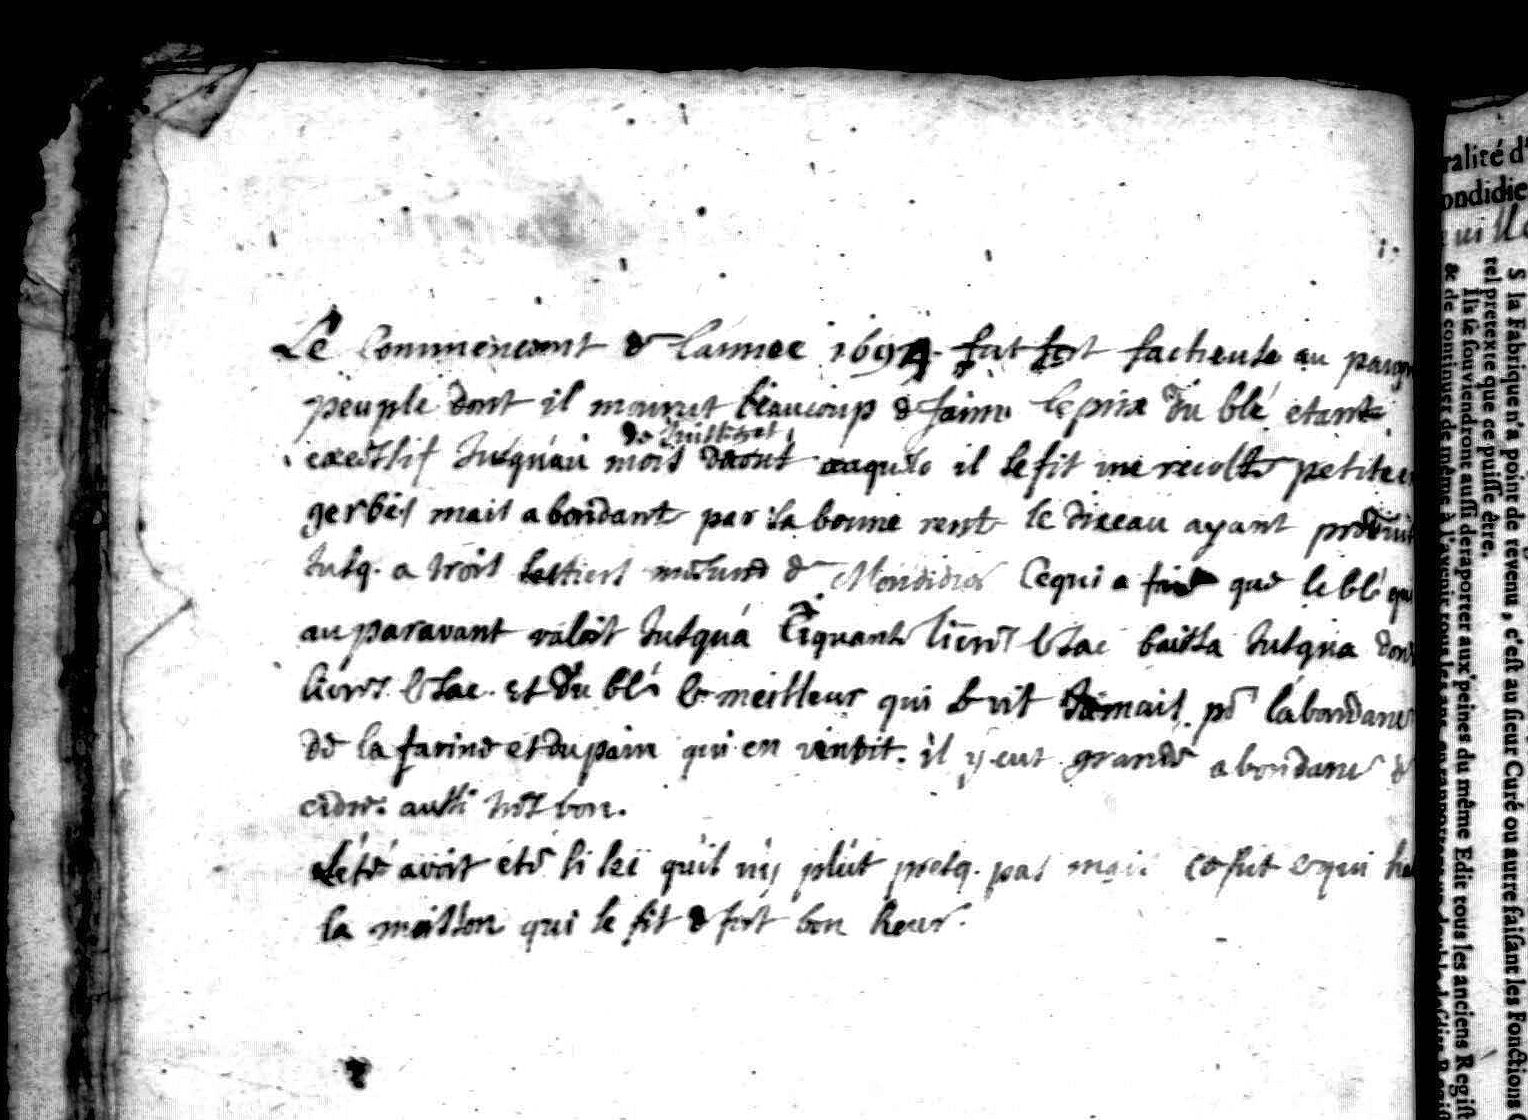 Le Commencemt de lannee 1694 fut fort facheuse au pauvr
peuple dont il mourut beaucoup de faim le prix du blé etant
de Juillet
excessif Jusquau mois il se fit une recolte petite en
gerbes mais abondante par la bonne rente le dizeau ayant produit
Jusq. a trois sestiers mesure de Mondidier Ce qui a fait que le blé qui
auparavant valoit Jusquá Cinquante livres le sac baissa Jusqua
livres le sac. et du blé le meilleur qui se vit Jamais. pr l'abondance
de la farine et du pain qui en vendit. il y eut grande abondance de
cidre. aussi tres bon.
L'été avoit eté si sec qu'il n'y plût presq. pas mais ce fut ce qui
la moisson qui se fit de fort bon heure.
ralité d'
ondidie
S la Fabrique n'a point de revenu, c'est au sieur Curé ou autre faisant les Fonctions
tel pretexte que ce puisse être.
Ils se souviendront aussi de raporter aux peines du même Edit tous les anciens Regist
& de continuer de même à l'avenir tous les ans